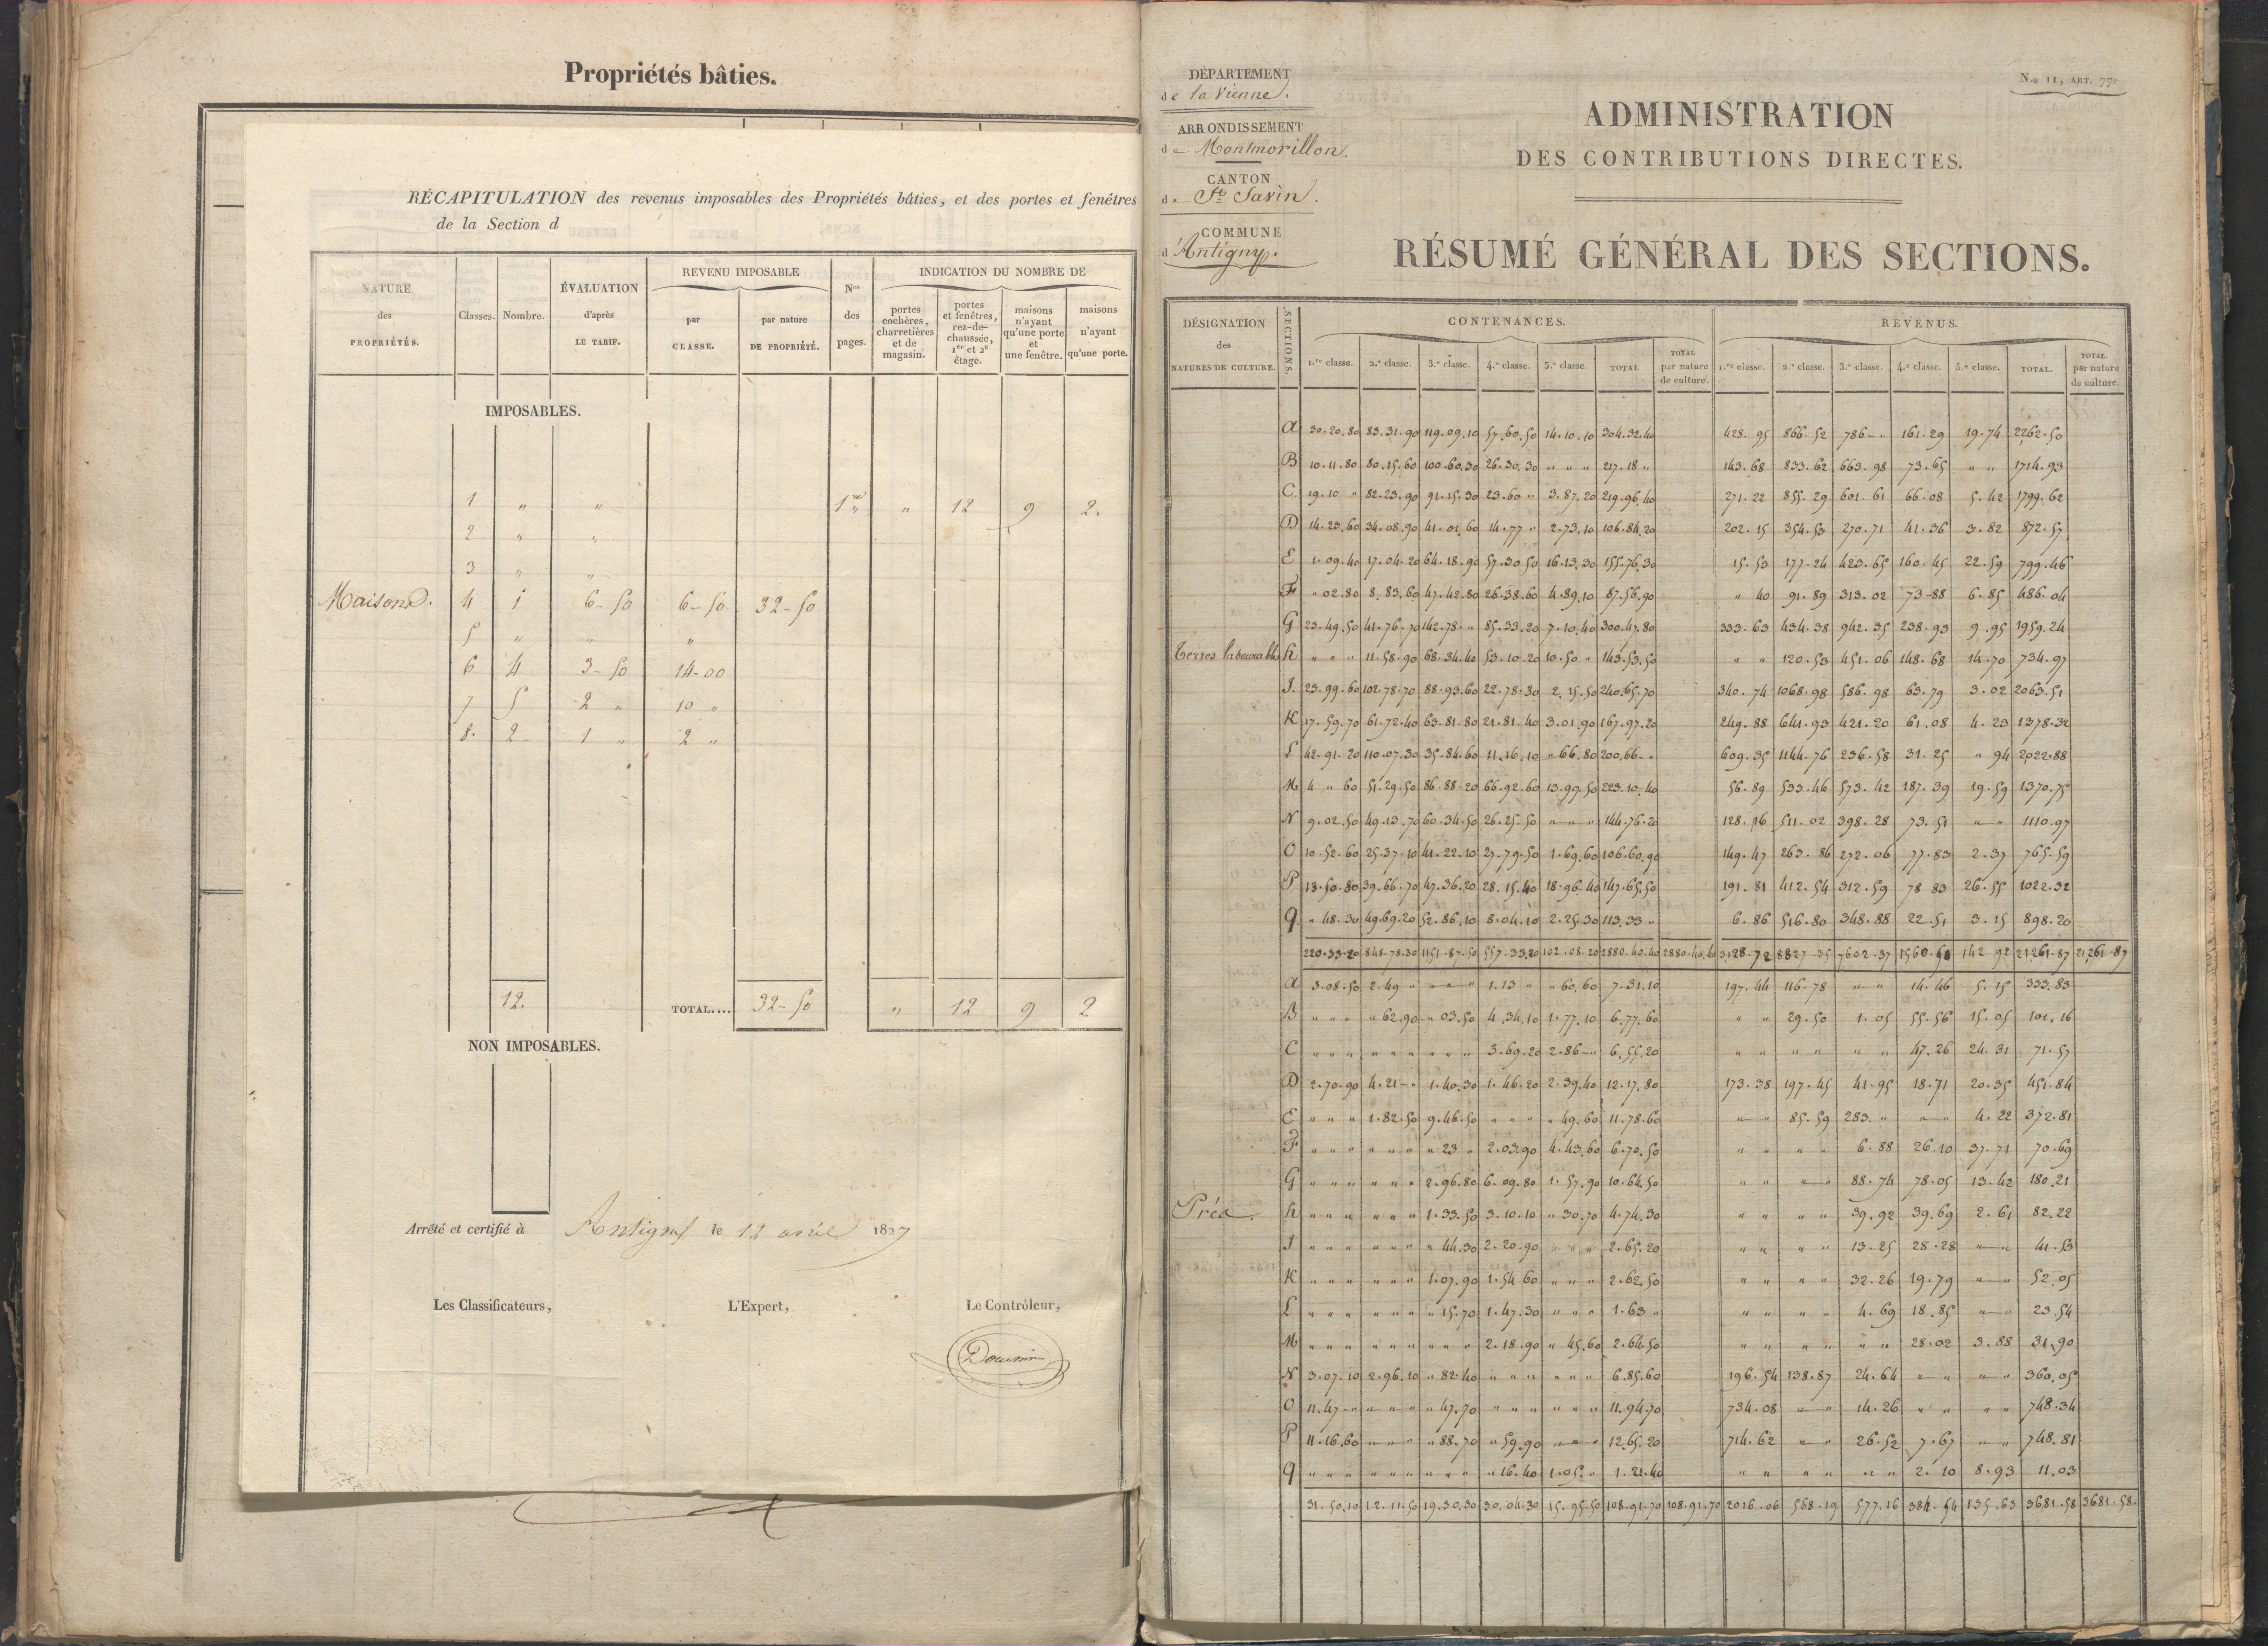 Propriétés bâties.
RÉCAPITULATION des revenus imposables des Propriétés bâties, et des portes et fenêtres
de la Section d
NATURE des PROPRIÉTÉS. Classes. Nombre. ÉVALUATION d'après LE TARIF. REVENU IMPOSABLE par CLASSE. par nature DE PROPRIÉTÉ. Nos des pages. INDICATION DU NOMBRE DE portes cochères, charretières et de magasin. portes et fenêtres, rez-de-chaussée, 1er et 2e étage. maisons n'ayant qu'une porte et une fenêtre. maisons n'ayant qu'une porte.
IMPOSABLES.
1 " " 1re " 12 9 2.
2 " "
3 " "
Maisons. 4 1 6-50 6-50 32-50
5 " " "
6 4 3-50 14-00
7 5 2 " 10 "
8. 2 1 " 2 "
12. TOTAL.... 32-50 " 12 9 2
NON IMPOSABLES.
Arrêté et certifié à Antigny le 12 avril 1827
Les Classificateurs, L'Expert, Le Contrôleur,
DÉPARTEMENT
de la Vienne.
ARRONDISSEMENT
de Montmorillon.
CANTON
de St Savin.
COMMUNE
d'Antigny.
N.o 11, ART. 77
ADMINISTRATION
DES CONTRIBUTIONS DIRECTES.
RÉSUMÉ GÉNÉRAL DES SECTIONS.
DÉSIGNATION des NATURES DE CULTURE. SECTIONS. CONTENANCES. REVENUS.
1.re classe. 2.e classe. 3.e classe. 4.e classe. 5.e classe. TOTAL TOTAL par nature de culture. 1.re classe. 2.e classe. 3.e classe. 4.e classe. 5.e classe. TOTAL. TOTAL par nature de culture.
A 30.20.80 83.31.90 119.09.10 57.60.50 14.10.10 304.32.40 428.95 866.52 786-" 161.29 19.74 2262.50
B 10.11.80 80.15.60 100.60.30 26.30.30 " " " 217.18 " 143.68 833.62 663.98 73.65 " " 1714.93
C. 19.10 " 82.23.90 91.15.30 23.60 " 3.87.20 219.96.40 271.22 855.29 601.61 66.08 5.42 1799.62
D 14.23.60 34.08.90 41.01.60 14.77 " 2.73.10 106.84.20 202.15 354.53 270.71 41.36 3.82 872.57
E 1.09.40 17.04.20 64.18.90 57.30.50 16.13.30 155.76.30 15.53 177.24 423.65 160.45 22.59 799.46
F " 02.80 8.83.60 47.42.80 26.38.60 4.89.10 87.56.90 " 40 91.89 313.02 73-88 6.85 486.04
G 23.49.50 41.76.70 142.78. " 85.33.20 7.10.40 300.47.80 333.63 434.38 942.35 238.93 9.95 1959.24
Terres labourables h " " " 11.58.90 68.34.40 53.10.20 10.50 " 143.53.50 " " 120.53 451.06 148.68 14.70 734.97
J. 23.99.60 102.78.70 88.93.60 22.78.30 2.15.50 240.65.70 340.74 1068.98 586.98 63.79 3.02 2063.51
K 17.59.70 61.72.40 63.81.80 21.81.40 3.01.90 167.97.20 249.88 641.93 421.20 61.08 4.23 1378.32
L 42.91.20 110.07.30 35.84.60 11.16.10 " 66.80 200.66-" 609.35 1144.76 236.58 31.25 " 94 2022.88
M 4 " 60 51.29.50 86.88.20 66.92.60 13.99.50 223.10.40 56.89 533.46 573.42 187.39 19.59 1370.75
N 9.02.50 49.13.70 60.34.50 26.25.50 " " " 144.76.20 128.16 511.02 398.28 73.51 " " 1110.97
O 10.52.60 25.37.10 41.22.10 27.79.50 1.69.60 106.60.90 149.47 263.86 272.06 77.83 2.37 765.59
P 13.50.80 39.66.70 47.36.20 28.15.40 18.96.40 147.65.50 191.81 412.54 312.59 78 83 26.55 1022.32
q " 48.30 49.69.20 52.86.10 8.04.10 2.25.30 113.33 " 6.86 516.80 348.88 22.51 3.15 898.20
220.33.20 848.78.30 1151.87.50 557.33.20 102.08.20 2880.40.40 2880.40.40 3128.72 8827.35 7602.37 1560.61 142 92 21261.87 21261-87
A 3.08.50 2.49 " " " " 1.13 " " 60.60 7.31.10 197.44 116.78 " " 14.46 5.15 333.83
B " " " " 62.90 " 03.50 4.34.10 1.77.10 6.77.60 " " 29.50 1.05 55.56 15.05 101.16
C " " " " " " " " " 3.69.20 2.86-" 6.55.20 " " " " " " 47.26 24.31 71.57
D 2.70.90 4.21-" 1.40.30 1.46.20 2.39.40 12.17.80 173.38 197.45 41.95 18.71 20.35 451.84
E " " " 1.82.50 9.46.50 " " " " 49.60 11.78.60 " " 85.59 283. " " " 4.22 372.81
F " " " " " " " 23 " 2.03.90 4.43.60 6.70.50 " " " " 6.88 26.10 37.71 70.69
G " " " " " " 2.96.80 6.09.80 1.57.90 10.64.50 " " " " 88.74 78.05 13.42 180.21
Prés. h " " " " " " 1.33.50 3.10.10 " 30.70 4.74.30 " " " " 39.92 39.69 2.61 82.22
J " " " " " " " 44.30 2.20.90 " " " 2.65.20 " " " " 13.25 28.28 " " 41.53
K " " " " " " 1.07.90 1.54 60 " " " 2.62.50 " " " " 32.26 19.79 " " 52.05
L " " " " " " " 15.70 1.47.30 " " " 1.63 " " " " " 4.69 18.85 " " 23.54
M " " " " " " " " " 2.18.90 " 45.60 2.64.50 " " " " " " 28.02 3.88 31.90
N 3.07.10 2.96.10 " 82.40 " " " " " " 6.85.60 196.54 138.87 24.64 " " " " 360.05
O 11.47-" " " " " 47.70 " " " " " " 11.94.70 734.08 " " 14.26 " " " " 748.34
P 11.16.60 " " " " 88.70 " 59.90 " " " 12.65.20 714.62 " " 26.52 7.67 " " 748.81
q " " " " " " " " " " 16.40 1.05. " 1.21.40 " " " " " " 2.10 8.93 11.03
31.50.10 12.11.50 19.30.30 30.04.30 15.95.50 108.91.70 108.91.70 2016.06 568.19 577.16 384.54 135.63 3681.58 3681.58.